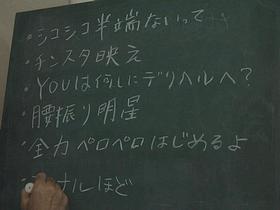 ・シコシコ半端ないって
・チンスタ映え
・YOUは何しにデリヘルへ?
・腰振り明星
・全力ペロペロはじめるよ
ナルほど